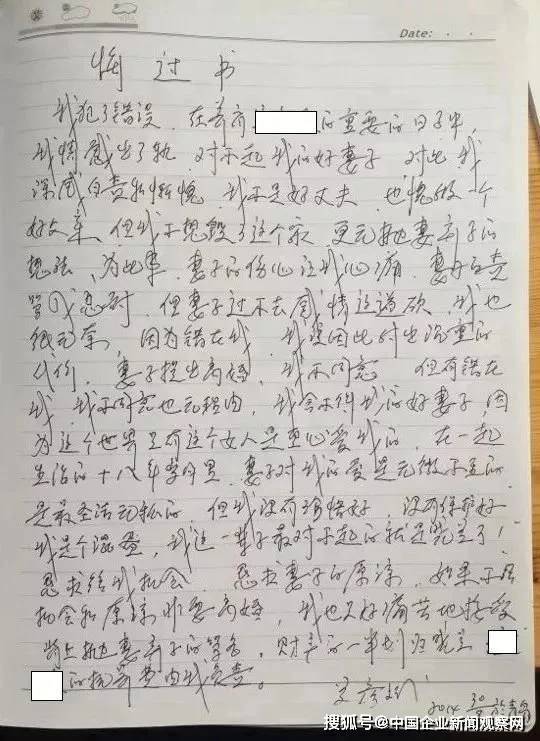 Date:
悔过书
我犯了错误,在养育的重要的日子中,
我情感出了轨,对不起我的好妻子,对此我
深感自责和惭愧,我不是好丈夫,也愧做一个
好父亲,但我不想毁了这个家,更无抛妻弃子的
想法,为此事,妻子的伤心让我心痛,妻
但妻子过不去感情这道砍,我也
很无奈,因为错在我,我要因此付出沉重的
代价,妻子提出离婚,我不同意,但有错在
我,我不同意也无理由,我舍不得我的好妻子,因
为这个世界只有这个女人是真心爱我的,在一起
生活的十八年岁月里,妻子对我的爱是无微不至的
是最圣洁无私的,但我没有珍惜好,没有保护好
我是个混蛋,我这一辈子最对不起的就是晓兰了!
恳求给我机会,恳求妻子的原谅,如果不给
机会和原谅非要离婚,我也只好痛苦地接受
背上抛妻弃子的骂名,财产的一半划归晓兰
的抚养费由我负责。
2014 于青岛
搜狐号@中国企业新闻观察网